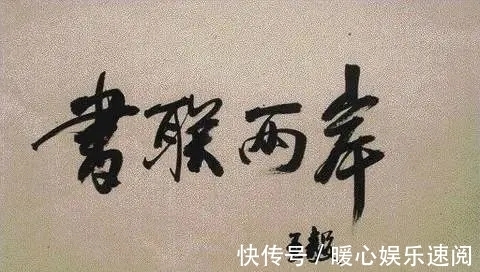 書联两岸
王毅
快传号/暖心娱乐速阅